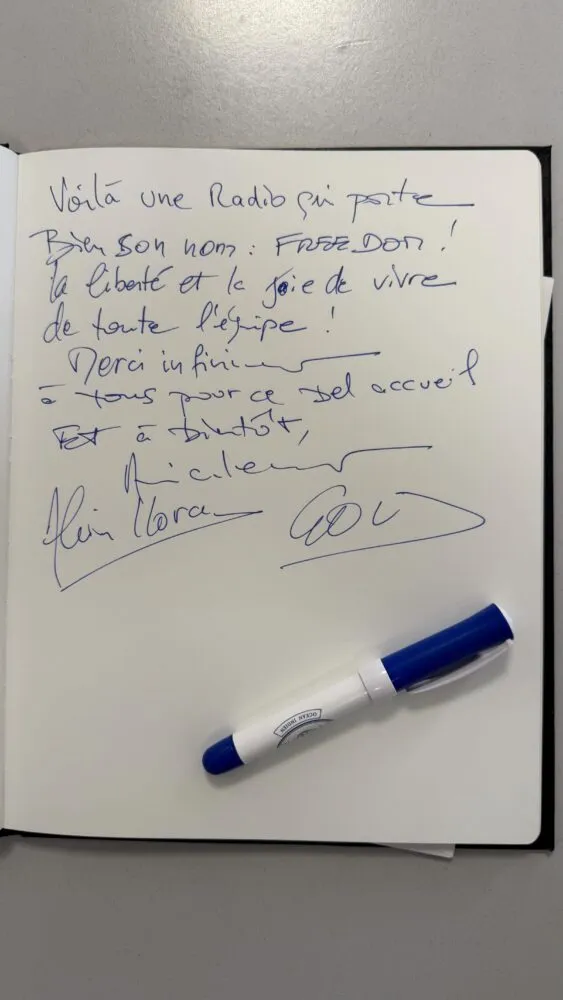 Voilà une Radio qui porte
Bien Son nom : FREEDOM !
la liberté et la joie de vivre
de toute l'équipe !
Merci infiniment
à tous pour ce bel accueil
Et à bientôt,
Amicalement
Alain Lloca
GOLD
OCEAN INDIEN